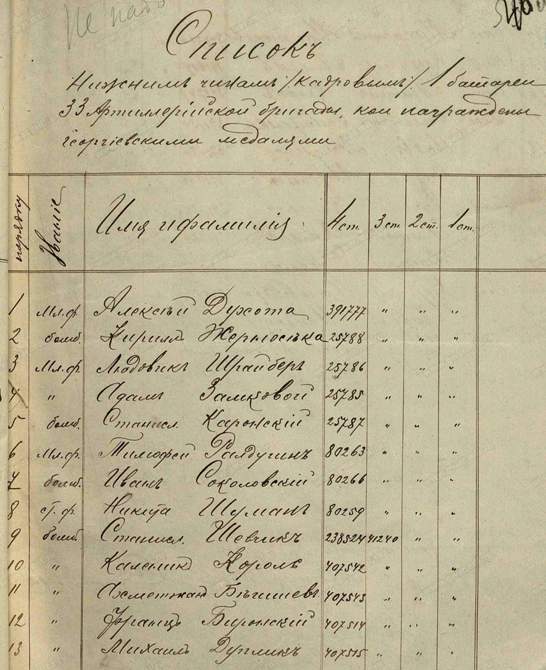 Не надо
Списокъ
Нижнимъ чинамъ /кадровымъ/ 1 батареи
33 Артиллерійской бригады, кои награждены
георгіевскими медалями
порядку Званіе Имя и фамилія 4 ст. 3 ст. 2 ст. 1 ст.
1 Мл.ф. Алексѣй 391777 " " "
2 бомб. Кирилл 25788 " " "
3 Мл.ф. Людовикъ Шрайберъ 25786 " " "
4 " Адамъ Замковой 25785 " " "
5 бомб. Станисл. Каронскій 25787 " " "
6 Мл.ф. Тимофей Ралдугинъ 80263 " " "
7 бомб. Иванъ Соколовскій 80266 " " "
8 ст.ф. Никита Шуманъ 80259 " " "
9 бомб. Станисл. Шевчикъ 238524 41240 " "
10 " Король 407542 " " "
11 " Ахметжан 407543 " " "
12 " Францъ Биронскій 407514 " " "
13 " Михаилъ 407515 " " "